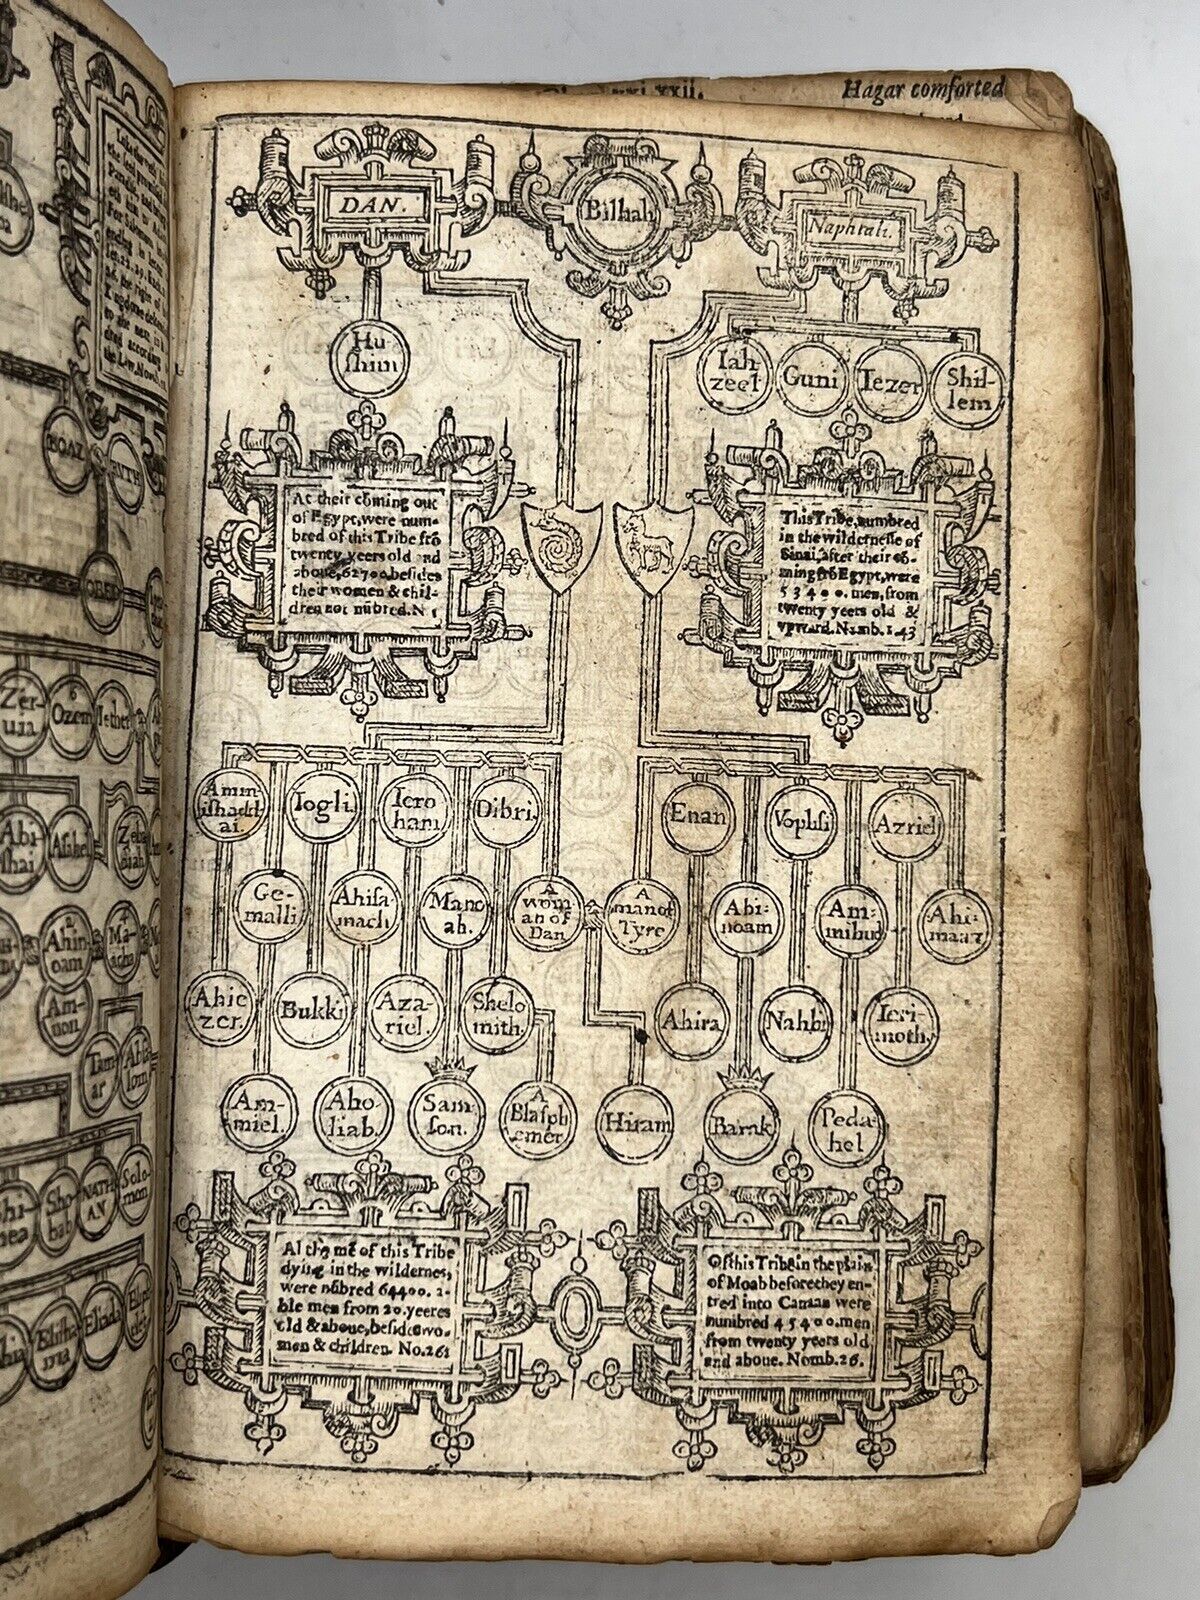 xxii.
Hagar comforted
DAN.
Bilhah
Naphtali.
Hu-
shim
Iah
zeel
Guni
Iezer
Shil-
lem
At their cōming out
of Egypt, were num-
bred of this Tribe frō
twenty yeers old and
aboue, 62700. besides
their women & chil-
dren not nūbred. N 1
This Tribe, numbred
in the wildernesse of
Sinai, after their cō-
ming frō Egypt, were
53400. men, from
twenty yeers old &
vpward. Numb. 1.43
Amm
ishadd
ai.
Iogli.
Iero
ham
Dibri,
Enan
Vophsi
Azriel
Ge-
malli
Ahisa-
mach
Mano
ah.
A
wom
an of
Dan
A
man of
Tyre
Abi-
noam
Am-
mihud
Ahi-
maaz
Ahie
zer.
Bukki
Aza-
riel.
Shelo
mith.
Ahira
Nahbi
Ieri-
moth,
Am-
miel.
Aho-
liab.
Sam-
son.
A
Blasph
emer
Hiram
Barak
Peda-
hel
Al the mē of this Tribe
dying in the wildernes,
were nūbred 64400. a-
ble men from 20. yeeres
old & aboue, beside wo-
men & children. No. 26
Of this Tribe in the plain
of Moab before they en-
tred into Canaan were
numbred 45400. men
from twenty yeers old
and aboue. Nomb. 26.
BOAZ
RVTH
OBED
Zer-
uia
6
Ozem
Iether
Abi-
shai
Asahel
2
Ahin-
oam
4
Ma-
acha
Am-
non.
Tam-
ar
Absa
lom
Sho-
bab
NATH-
AN
Solo-
mon
Elisha-
ma
Eliada